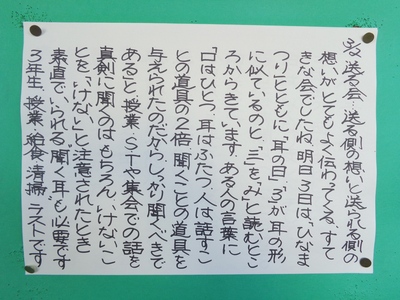 ３送る会…送る側の想いと送られる側の
想いがとてもよく伝わってくる、すて
きな会でしたね。明日３日は、「ひなま
つり」とともに、「耳の日」。「３」が耳の形
に似ているのと、「三」を「み」と読むとこ
ろからきています。ある人の言葉に
「口はひとつ、耳はふたつ。人は話すこ
との道具の２倍、聞くことの道具を
与えられたのだから、しっかり聞くべきで
ある」と。授業、ＳＴや集会での話を
真剣に聞くのはもちろん、いけないこ
とを「いけない」と注意されたとき
素直で、いられる「聞く耳」も必要です
３年生、授業、給食、清掃、ラストです